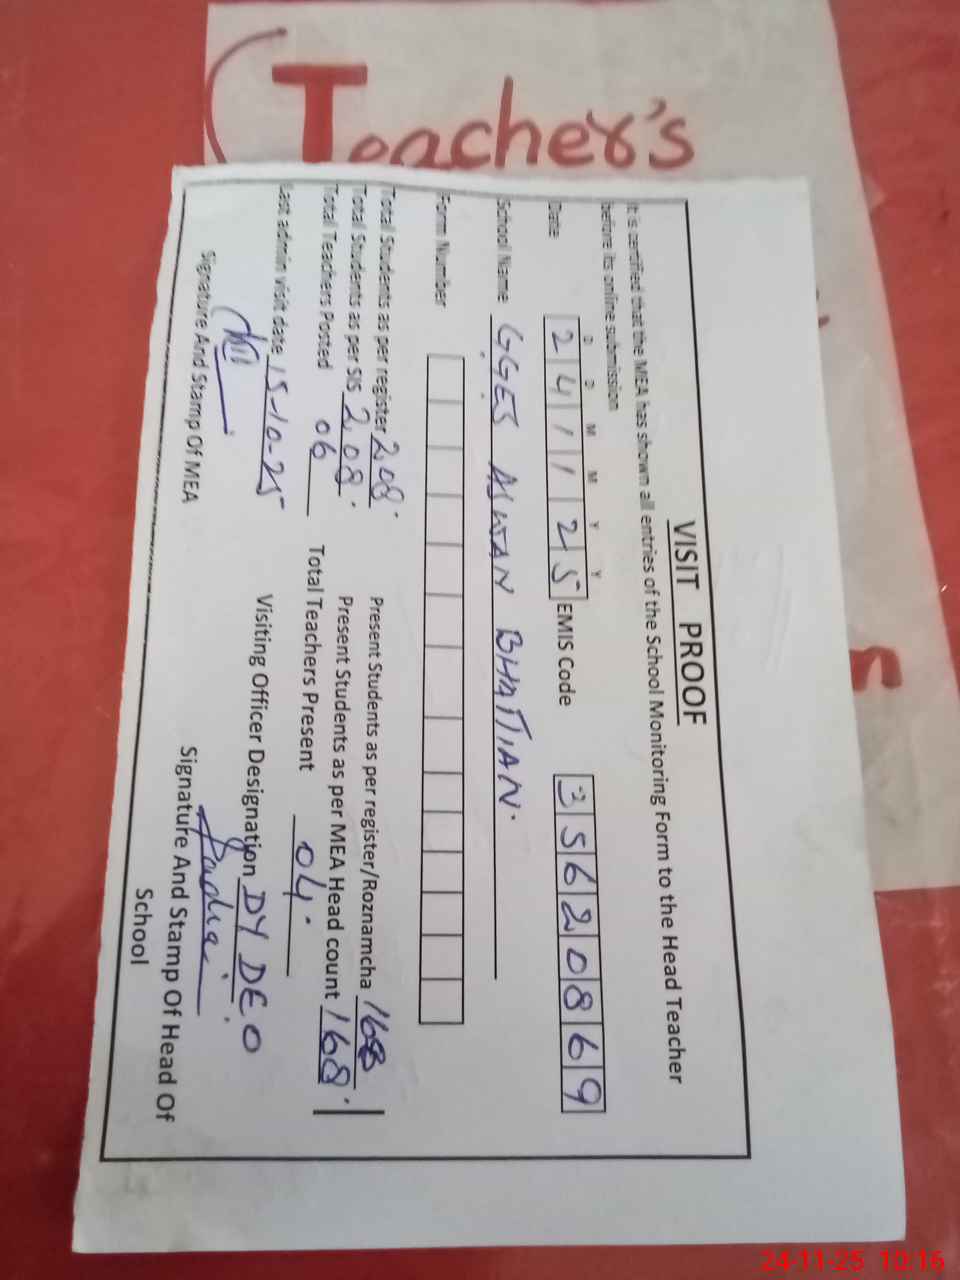 Teacher's
VISIT PROOF
It is certified that the MEA has shown all entries of the School Monitoring Form to the Head Teacher
before its online submission
D D M M Y Y
Date 241125 EMIS Code 35620869
School Name GGES AWAN BHATIAN.
Form Number
Total Students as per register 208. Present Students as per register/Roznamcha 168
Total Students as per SIS 208. Present Students as per MEA Head count 168.
Total Teachers Posted 06 Total Teachers Present 04.
Last admin visit date 15-10-25 Visiting Officer Designation DY DEO.
Signature And Stamp Of MEA Signature And Stamp Of Head Of
School
24-11-25 10:16